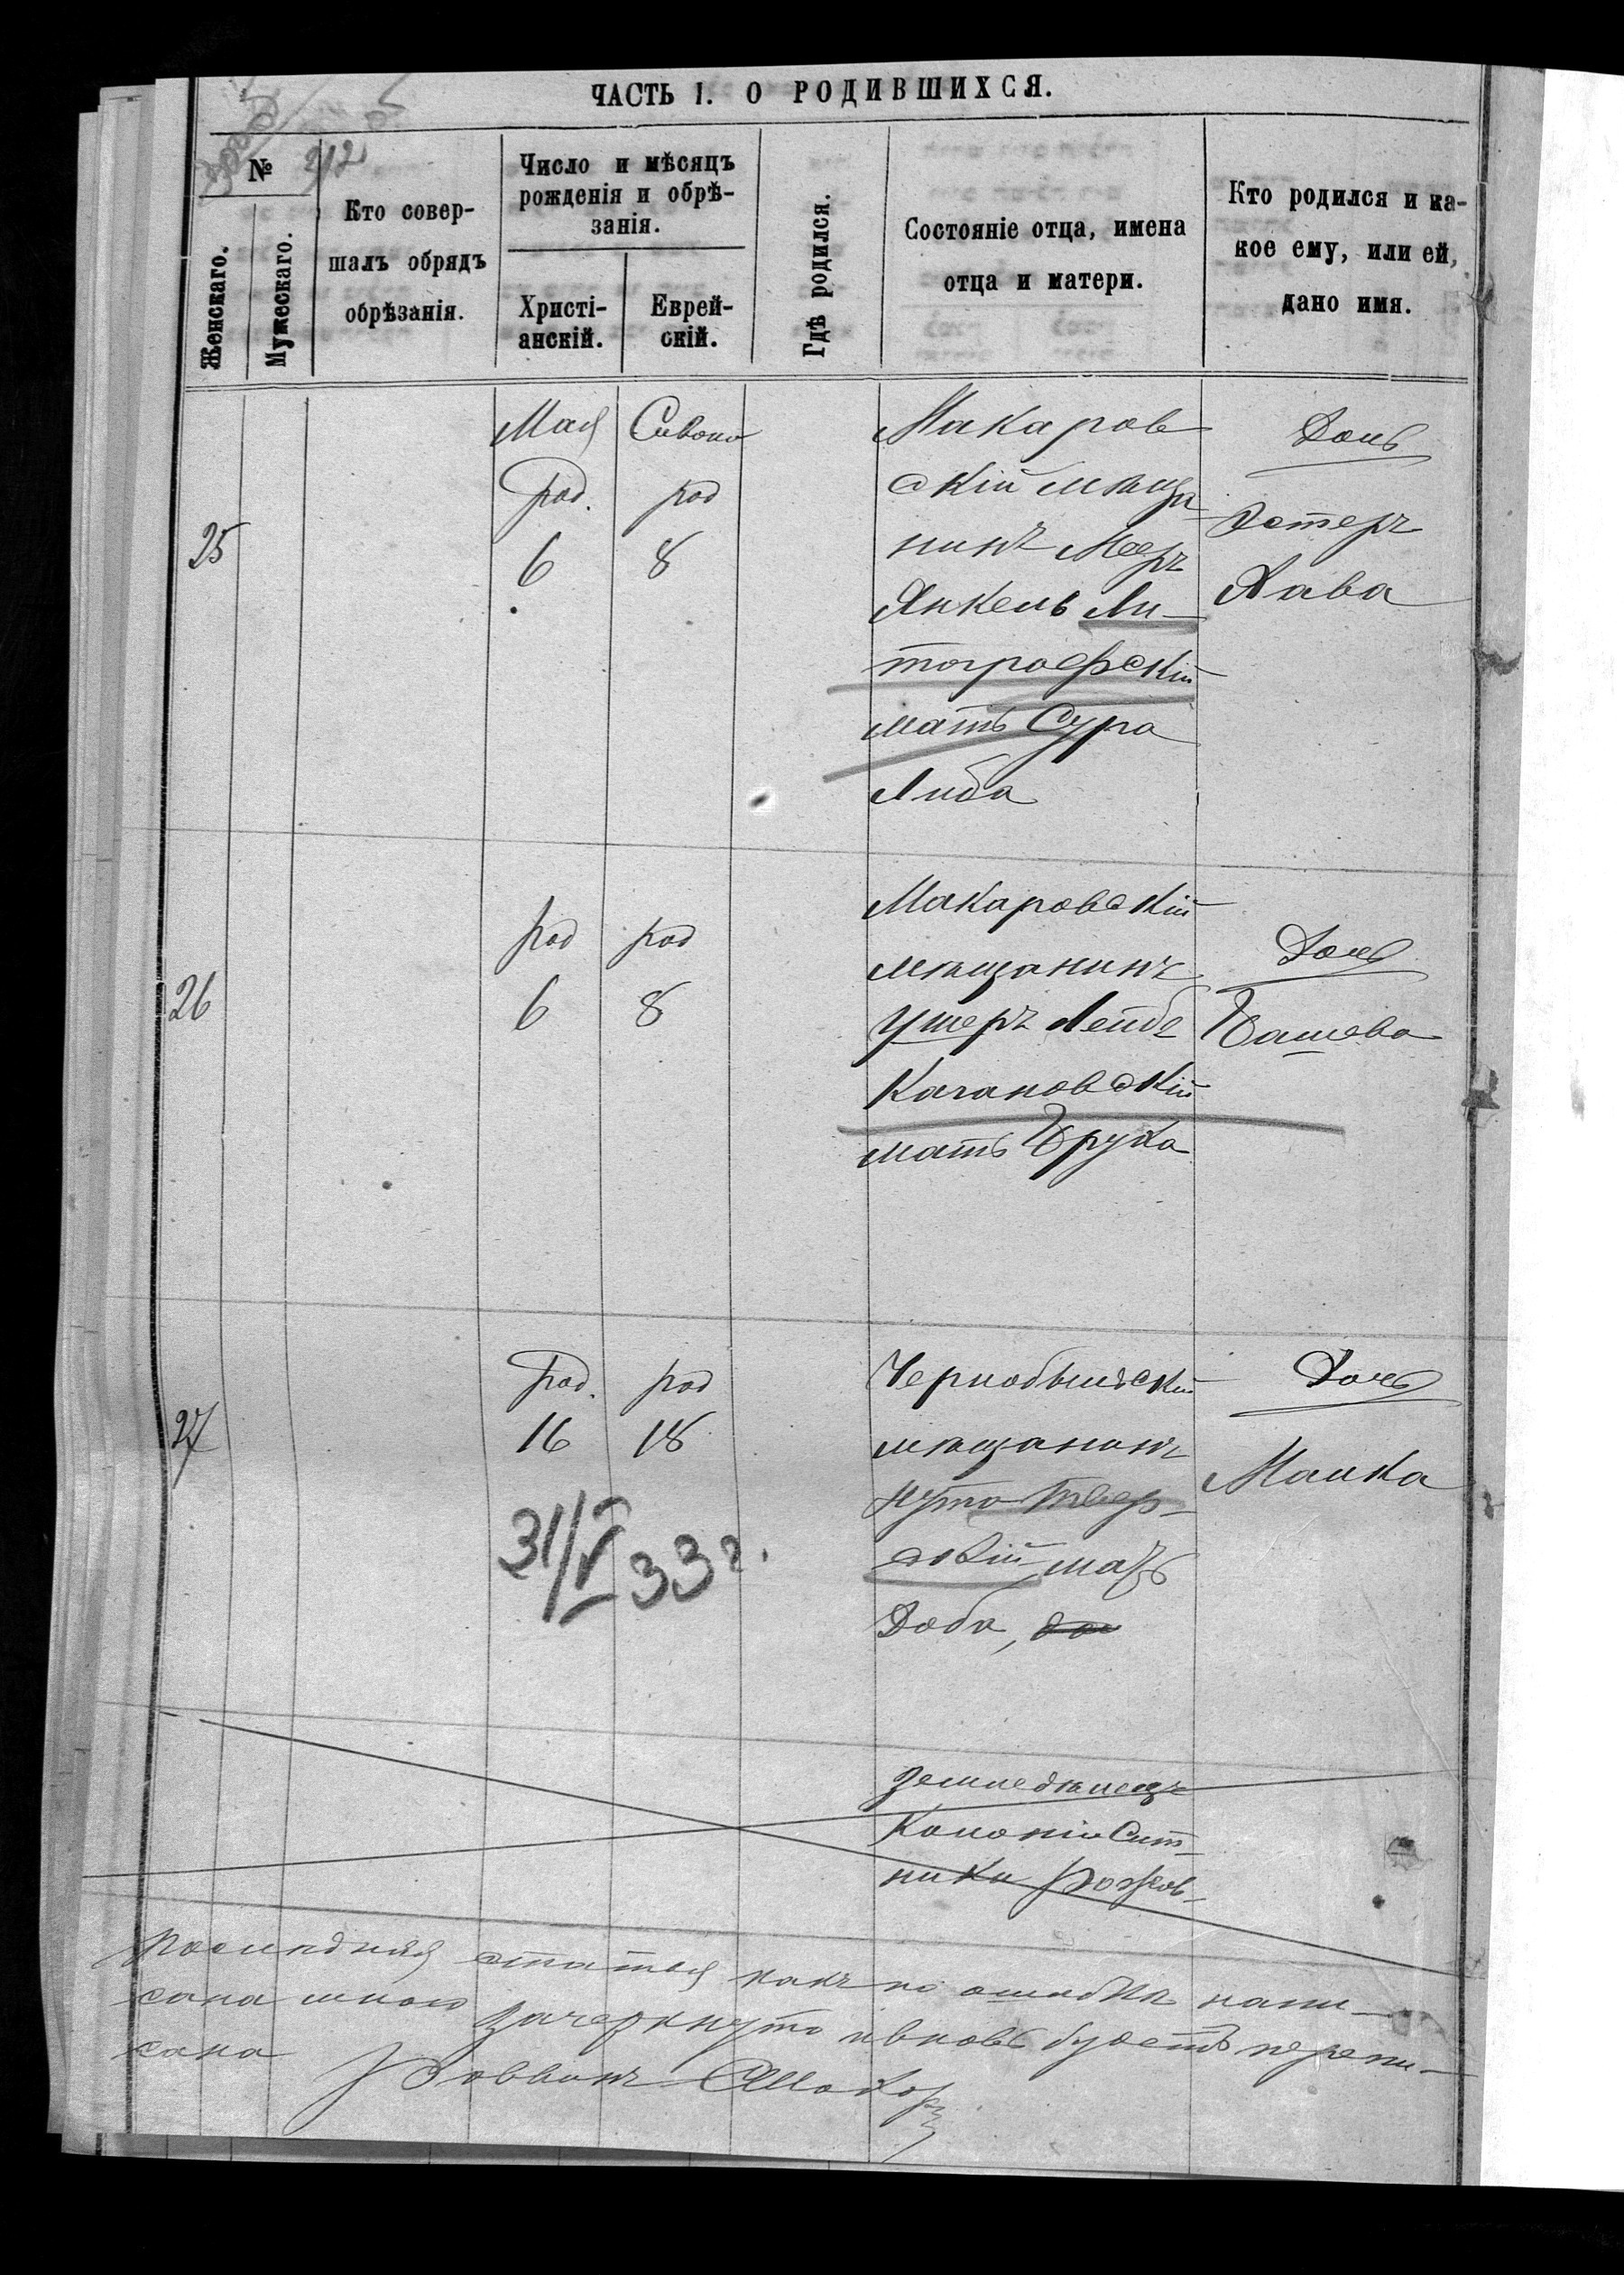 ЧАСТЬ I. О РОДИВШИХСЯ.
№
212
Женскаго.
Мужескаго.
Кто совер-
шалъ обрядъ
обрѣзанія.
Число и мѣсяцъ
рожденія и обрѣ-
занія.
Христі-
анскій.
Еврей-
скій.
Гдѣ родился.
Состояніе отца, имена
отца и матери.
Кто родился и ка-
кое ему, или ей,
дано имя.
25
Мая
Род.
6
Сивона
род
8
Макаров
скій мѣща
нинъ Мееръ
Янкель Ли-
тографскій
мать Сура
Либа
Дочь
Эстеръ
Хава
26
род
6
род
8
Макаровскій
мѣщанинъ
Ушеръ Лейбъ
Качановскій
мать Бруха
Дочь
Башева
27
Род.
16
род
18
31/V 33 г.
Чернобыльскій
мѣщанинъ
Нута Твер-
скій мать
Доба,
Дочь
Малка
Земледѣлецъ
Колоніи Сит-
няки
Послѣдняя статья какъ по ошибкѣ напи-
сана мною зачеркнуто и вновь будетъ перепи-
сана
Раввинъ